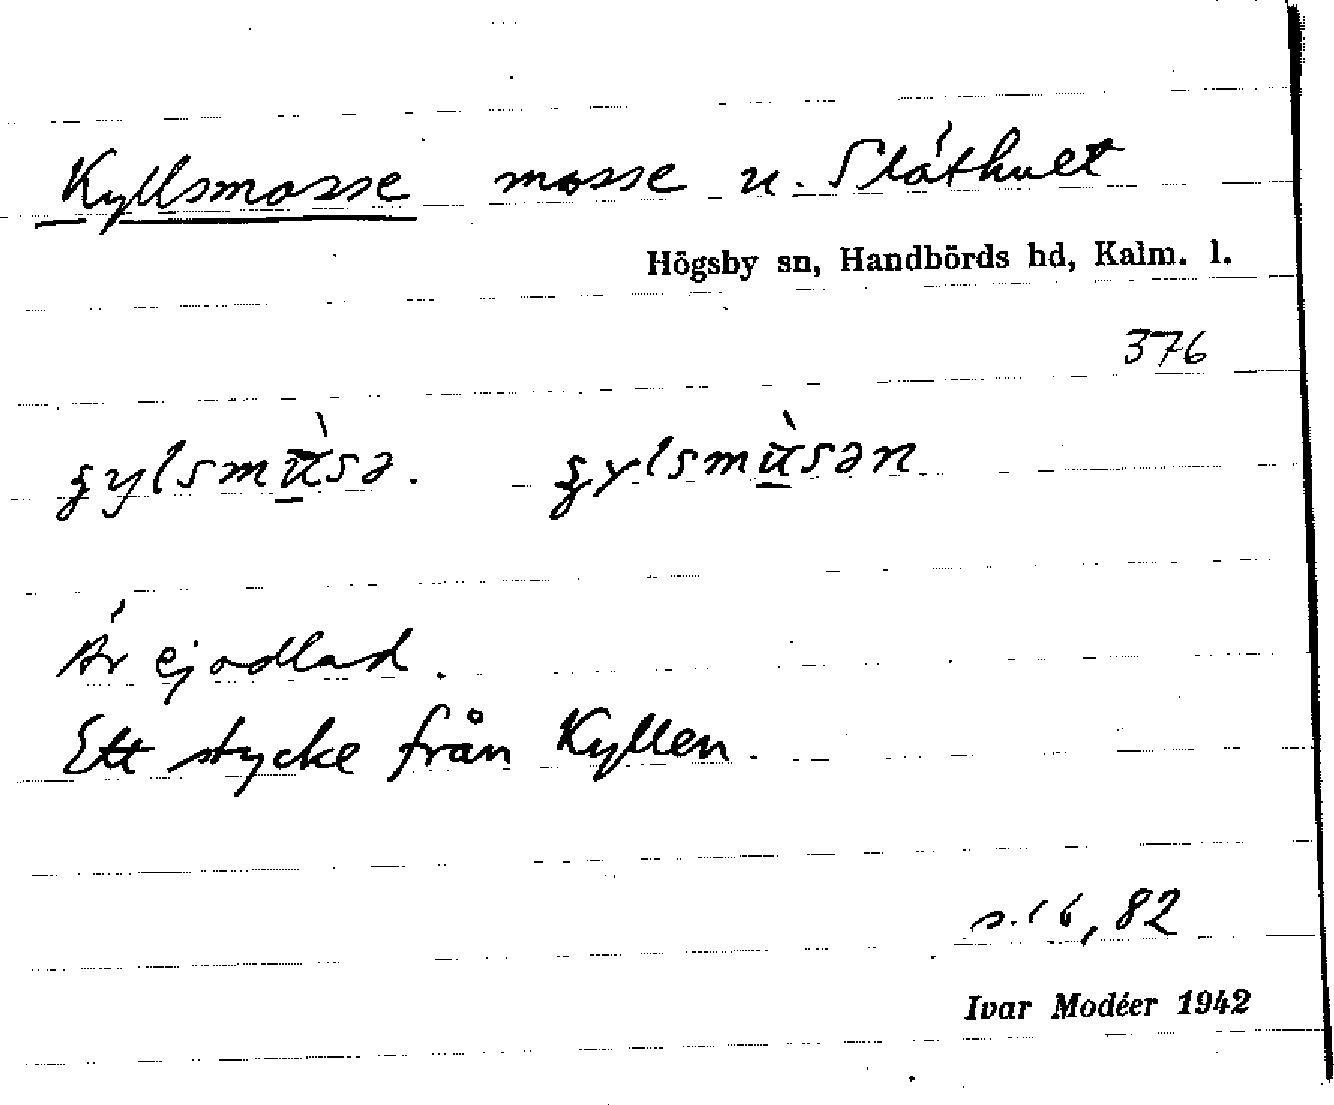 Kyllsmosse mosse u. Släthult
Högsby sn, Handbörds hd, Kalm. l.
376
Är ej odlad.
Ett stycke från Kyllen.
s. 16, 82
Ivar Modéer 1942